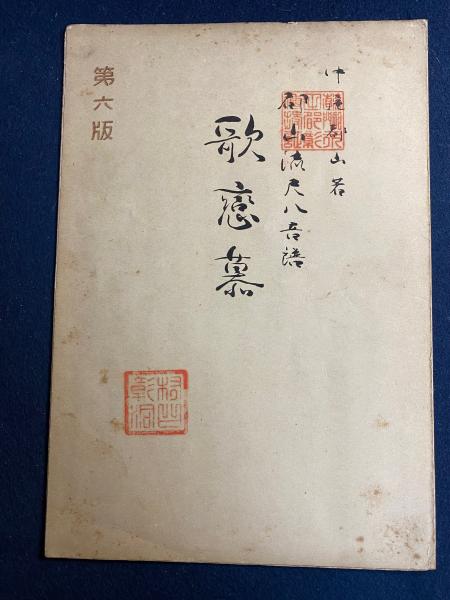 中尾都山著
都山流尺八音譜
歌恋慕
第六版